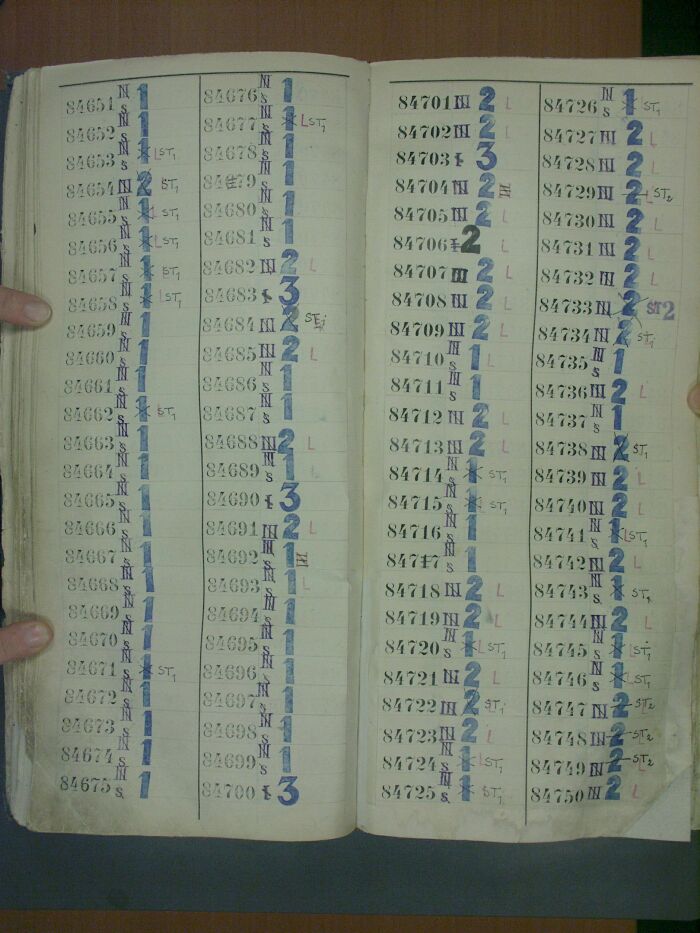 84651 N S 1
84652 N S 1
84653 N S 1 L ST1
84654 III 2 ST1
84655 N S 1 L ST1
84656 N S 1 L ST1
84657 N S 1 ST1
84658 N S 1 L ST1
84659 N S 1
84660 N S 1
84661 N S 1
84662 N S 1 ST1
84663 N S 1
84664 N S 1
84665 N S 1
84666 N S 1
84667 N S 1
84668 N S 1
84669 N S 1
84670 N S 1
84671 N S 1 ST1
84672 N S 1
84673 N S 1
84674 N S 1
84675 N S 1
84676 N S 1
84677 N S 1 L ST1
84678 N S 1
84679 N S 1
84680 N S 1
84681 N S 1
84682 III 2 L
84683 I 3
84684 III 2
84685 III 2 L
84686 N S 1
84687 N S 1
84688 III 2 L
84689 N S 1
84690 I 3
84691 III 2 L
84692 N S 1 III
84693 N S 1 L
84694 N S 1
84695 N S 1
84696 N S 1
84697 N S 1
84698 N S 1
84699 N S 1
84700 I 3
84701 III 2 L
84702 III 2 L
84703 I 3
84704 III 2 III
84705 III 2 L
84706 2 L
84707 III 2 L
84708 III 2 L
84709 III 2 L
84710 N S 1 L
84711 N S 1
84712 III 2 L
84713 III 2 L
84714 N S 1 ST1
84715 N S 1 ST1
84716 N S 1
84717 N S 1
84718 III 2 L
84719 III 2 L
84720 N S 1 L ST1
84721 III 2 L
84722 III 2 ST1
84723 III 2 L
84724 N S 1 L ST1
84725 N S 1 ST1
84726 N S 1 ST1
84727 III 2 L
84728 III 2 L
84729 III 2 L ST2
84730 III 2 L
84731 III 2 L
84732 III 2 L
84733 III 2 ST2
84734 III 2 ST1
84735 N S 1
84736 III 2 L
84737 N S 1
84738 III 2 ST1
84739 III 2 L
84740 III 2 L
84741 N S 1 L ST1
84742 III 2 L
84743 N S 1 ST1
84744 III 2 L
84745 N S 1 L ST1
84746 N S 1 L ST1
84747 III 2 ST2
84748 III 2 ST2
84749 III 2 L ST2
84750 III 2 L